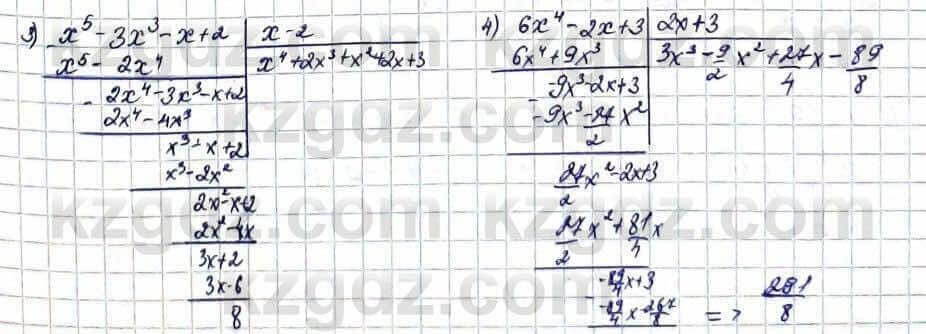 3) x⁵ - 3x³ - x + 2 | x - 2
x⁵ - 2x⁴ | x⁴ + 2x³ + x² + 2x + 3
- 2x⁴ - 3x³ - x + 2
2x⁴ - 4x³
x³ - x + 2
x³ - 2x²
2x² - x + 2
2x² - 4x
3x + 2
3x - 6
8
4) 6x⁴ - 2x + 3 | 2x + 3
6x⁴ + 9x³ | 3x³ - 9/2 x² + 27/4 x - 89/8
- -9x³ - 2x + 3
-9x³ - 27/2 x²
27/2 x² - 2x + 3
27/2 x² + 81/4 x
- -89/4 x + 3
-89/4 x - 267/8 => 291/8
kzgdz.com
kzgdz.com
kzgdz.com